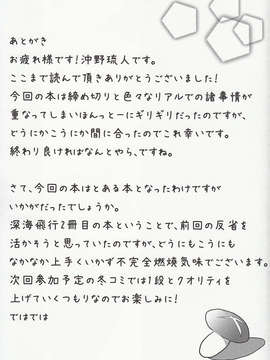 あとがき
お疲れ様です！沖野琉人です。
ここまで読んで頂きありがとうございました！
今回の本は締め切りと色々なリアルでの諸事情が
重なってしまいほんっとーにギリギリだったのですが、
どうにかこうにか間に合ったのでこれ幸いです。
終わり良ければなんとやら、ですね。
さて、今回の本はとある本となったわけですが
いかがだったでしょうか。
深海飛行2冊目の本ということで、前回の反省を
活かそうと思っていたのですが、どうにもこうにも
なかなか上手くいかず不完全燃焼気味でございます。
次回参加予定の冬コミでは1段とクオリティを
上げていくつもりなのでお楽しみに！
ではでは